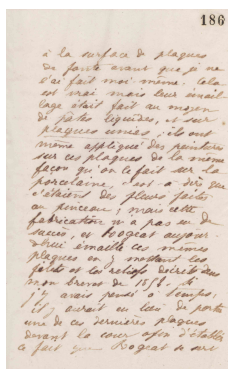 186
à la surface de plaques
de fonte avant que je ne
l'ai fait moi même. Cela
est vrai mais leur émail
lage était fait au moyen
de pâtes liquides, et sur
plaques unies; ils ont
même appliqué des peintures
sur ces plaques de la même
façon qu'on le fait sur la
porcelaine, c'est à dire que
c'étaient des fleurs faites
au pinceau, mais cette
fabrication n'a pas eu de
succès, et Bogeat aujour
d'hui émaille ces mêmes
plaques en y mettant les
filets et les reliefs décrits dans
mon brevet de 1858. Si
j'y avais pensé à temps,
il y aurait eu lieu de porter
une de ces dernières plaques
devant la cour afin d'établir
ce fait que Bogeat se sert